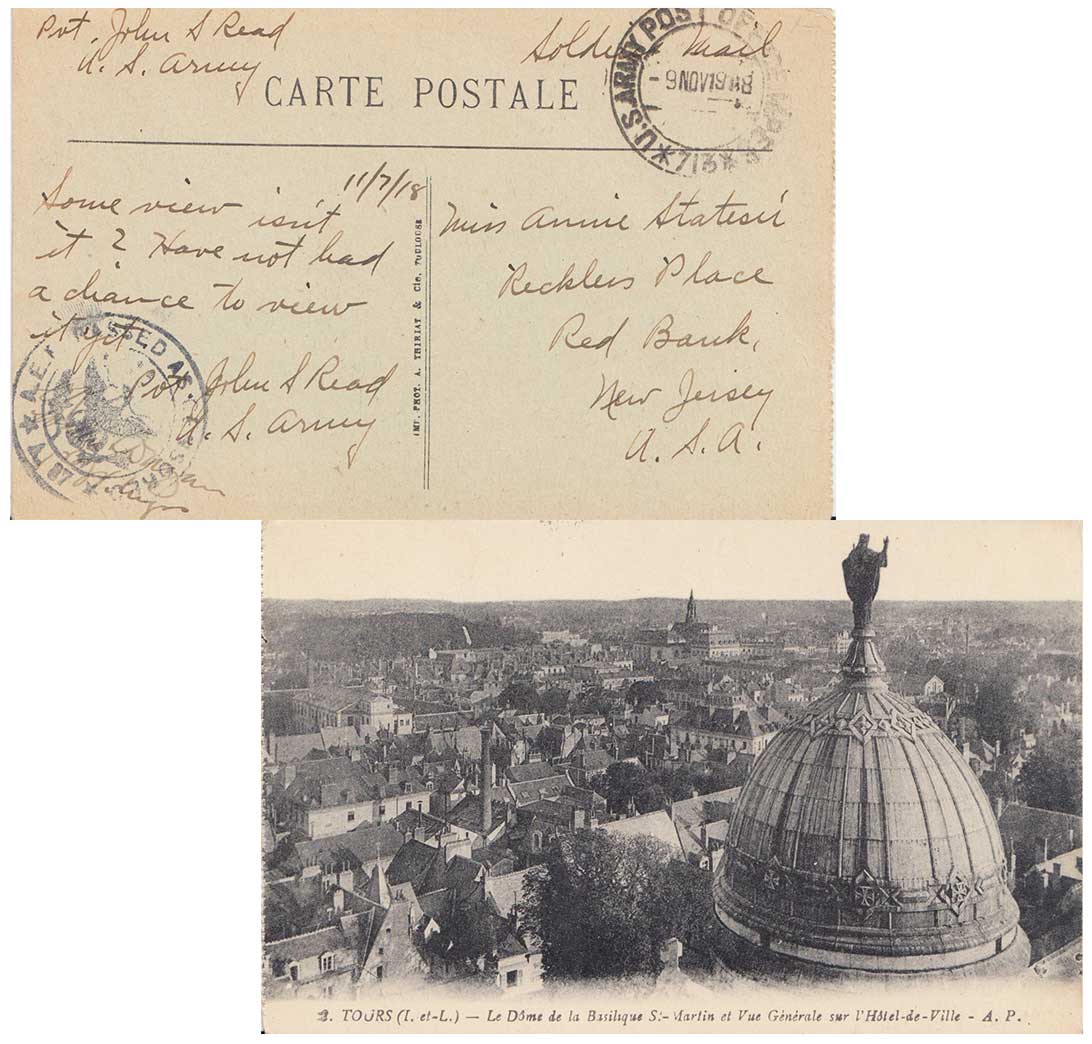 Pvt. John S Read
U. S. Army
Soldiers Mail
CARTE POSTALE
U.S. ARMY POST OFFICE
- 9 NOV 1918
★ 713 ★
11/7/18
Some view isn't
it? Have not had
a chance to view
it yet
Pvt. John S Read
U. S. Army
A.E.F. PASSED AS
IMP. PHOT. A. THIRIAT & Cie, TOULOUSE
Miss Annie Statesir
Reckless Place
Red Bank,
New Jersey
U. S. A.
2. TOURS (I. et-L.) — Le Dôme de la Basilique St-Martin et Vue Générale sur l'Hôtel-de-Ville - A. P.